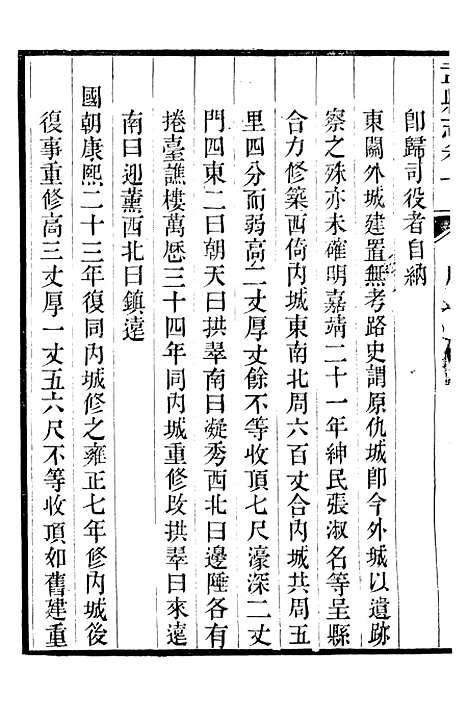 卽歸司役者自納
東關外城建置無考路史謂原仇城卽今外城以遺跡
察之殊亦未確明嘉靖二十一年紳民張淑名等呈縣
合力修築西倚內城東南北周六百丈合內城共周五
里四分而弱高二丈厚丈餘不等收頂七尺濠深二丈
門四東二曰朝天曰拱翠南曰凝秀西北曰邊陲各有
捲臺譙樓萬歷三十四年同內城重修改拱翠曰來遠
南曰迎薰西北曰鎮遠
國朝康熙二十三年復同內城修之雍正七年修內城後
復事重修高三丈厚一丈五六尺不等收頂如舊建重